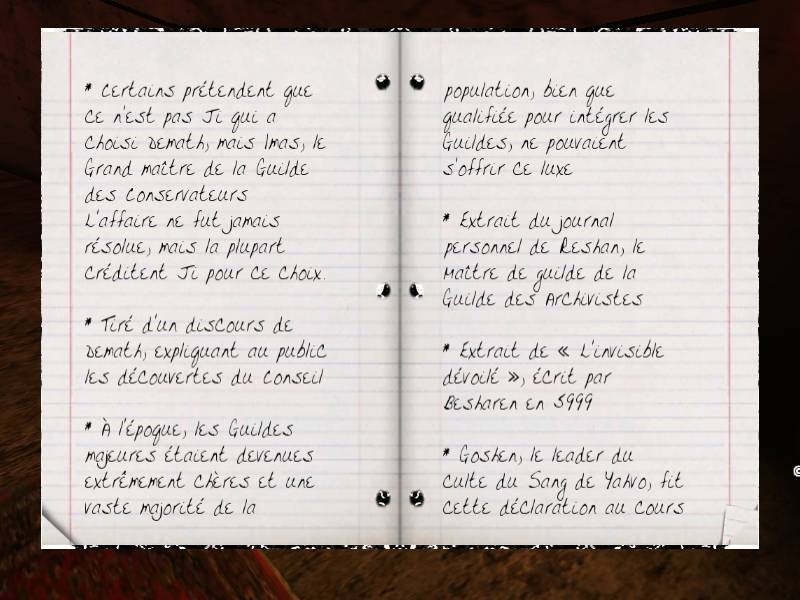 * Certains prétendent que
ce n'est pas Ji qui a
choisi Demath, mais Imas, le
Grand maître de la Guilde
des Conservateurs
L'affaire ne fut jamais
résolue, mais la plupart
créditent Ji pour ce choix.
* Tiré d'un discours de
Demath, expliquant au public
les découvertes du Conseil
* À l'époque, les Guildes
majeures étaient devenues
extrêmement chères et une
vaste majorité de la
population, bien que
qualifiée pour intégrer les
Guildes, ne pouvaient
s'offrir ce luxe
* Extrait du journal
personnel de Reshan, le
Maître de guilde de la
Guilde des Archivistes
* Extrait de « L'invisible
dévoilé », écrit par
Besharen en 5999
* Goshen, le leader du
culte du Sang de Yahvo, fit
cette déclaration au cours